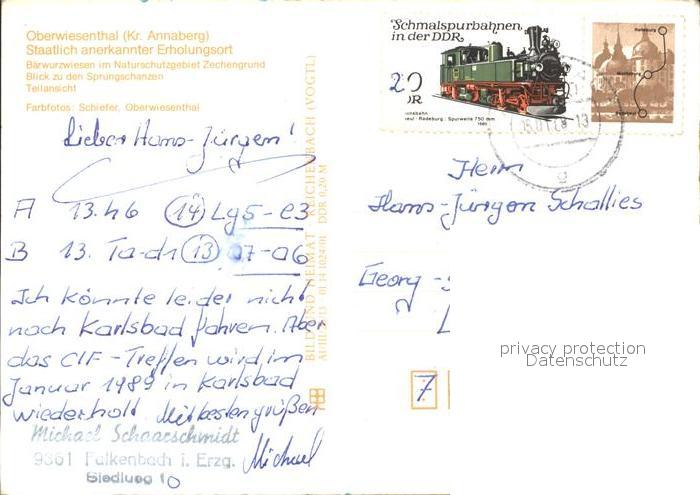 Oberwiesenthal (Kr. Annaberg)
Staatlich anerkannter Erholungsort
Bärwurzwiesen im Naturschutzgebiet Zechengrund
Blick zu den Sprungschanzen
Teilansicht
Farbfotos: Schiefer, Oberwiesenthal
Lieber Hans-Jürgen!
A 13. h6 (14) Lg5-e3
B 13. Ta-d1 (13) 07-06
Ich könnte leider nicht
nach Karlsbad fahren. Aber
das CIF-Treffen wird im
Januar 1989 in Karlsbad
wiederholt. Mit besten grüßen
Michael
Michael Schaarschmidt
9361 Falkenbach i. Erzg.
Siedlung 10
BILD UND HEIMAT REICHENBACH (VOGTL)
DDR 0,20 M
Schmalspurbahnen
in der DDR
20
DDR
Radeburg; Spurweite 750 mm
Radeburg
Moritzburg
Radebeul
Herrn
Hans-Jürgen Schallies
Georg-
7
privacy protection
Datenschutz